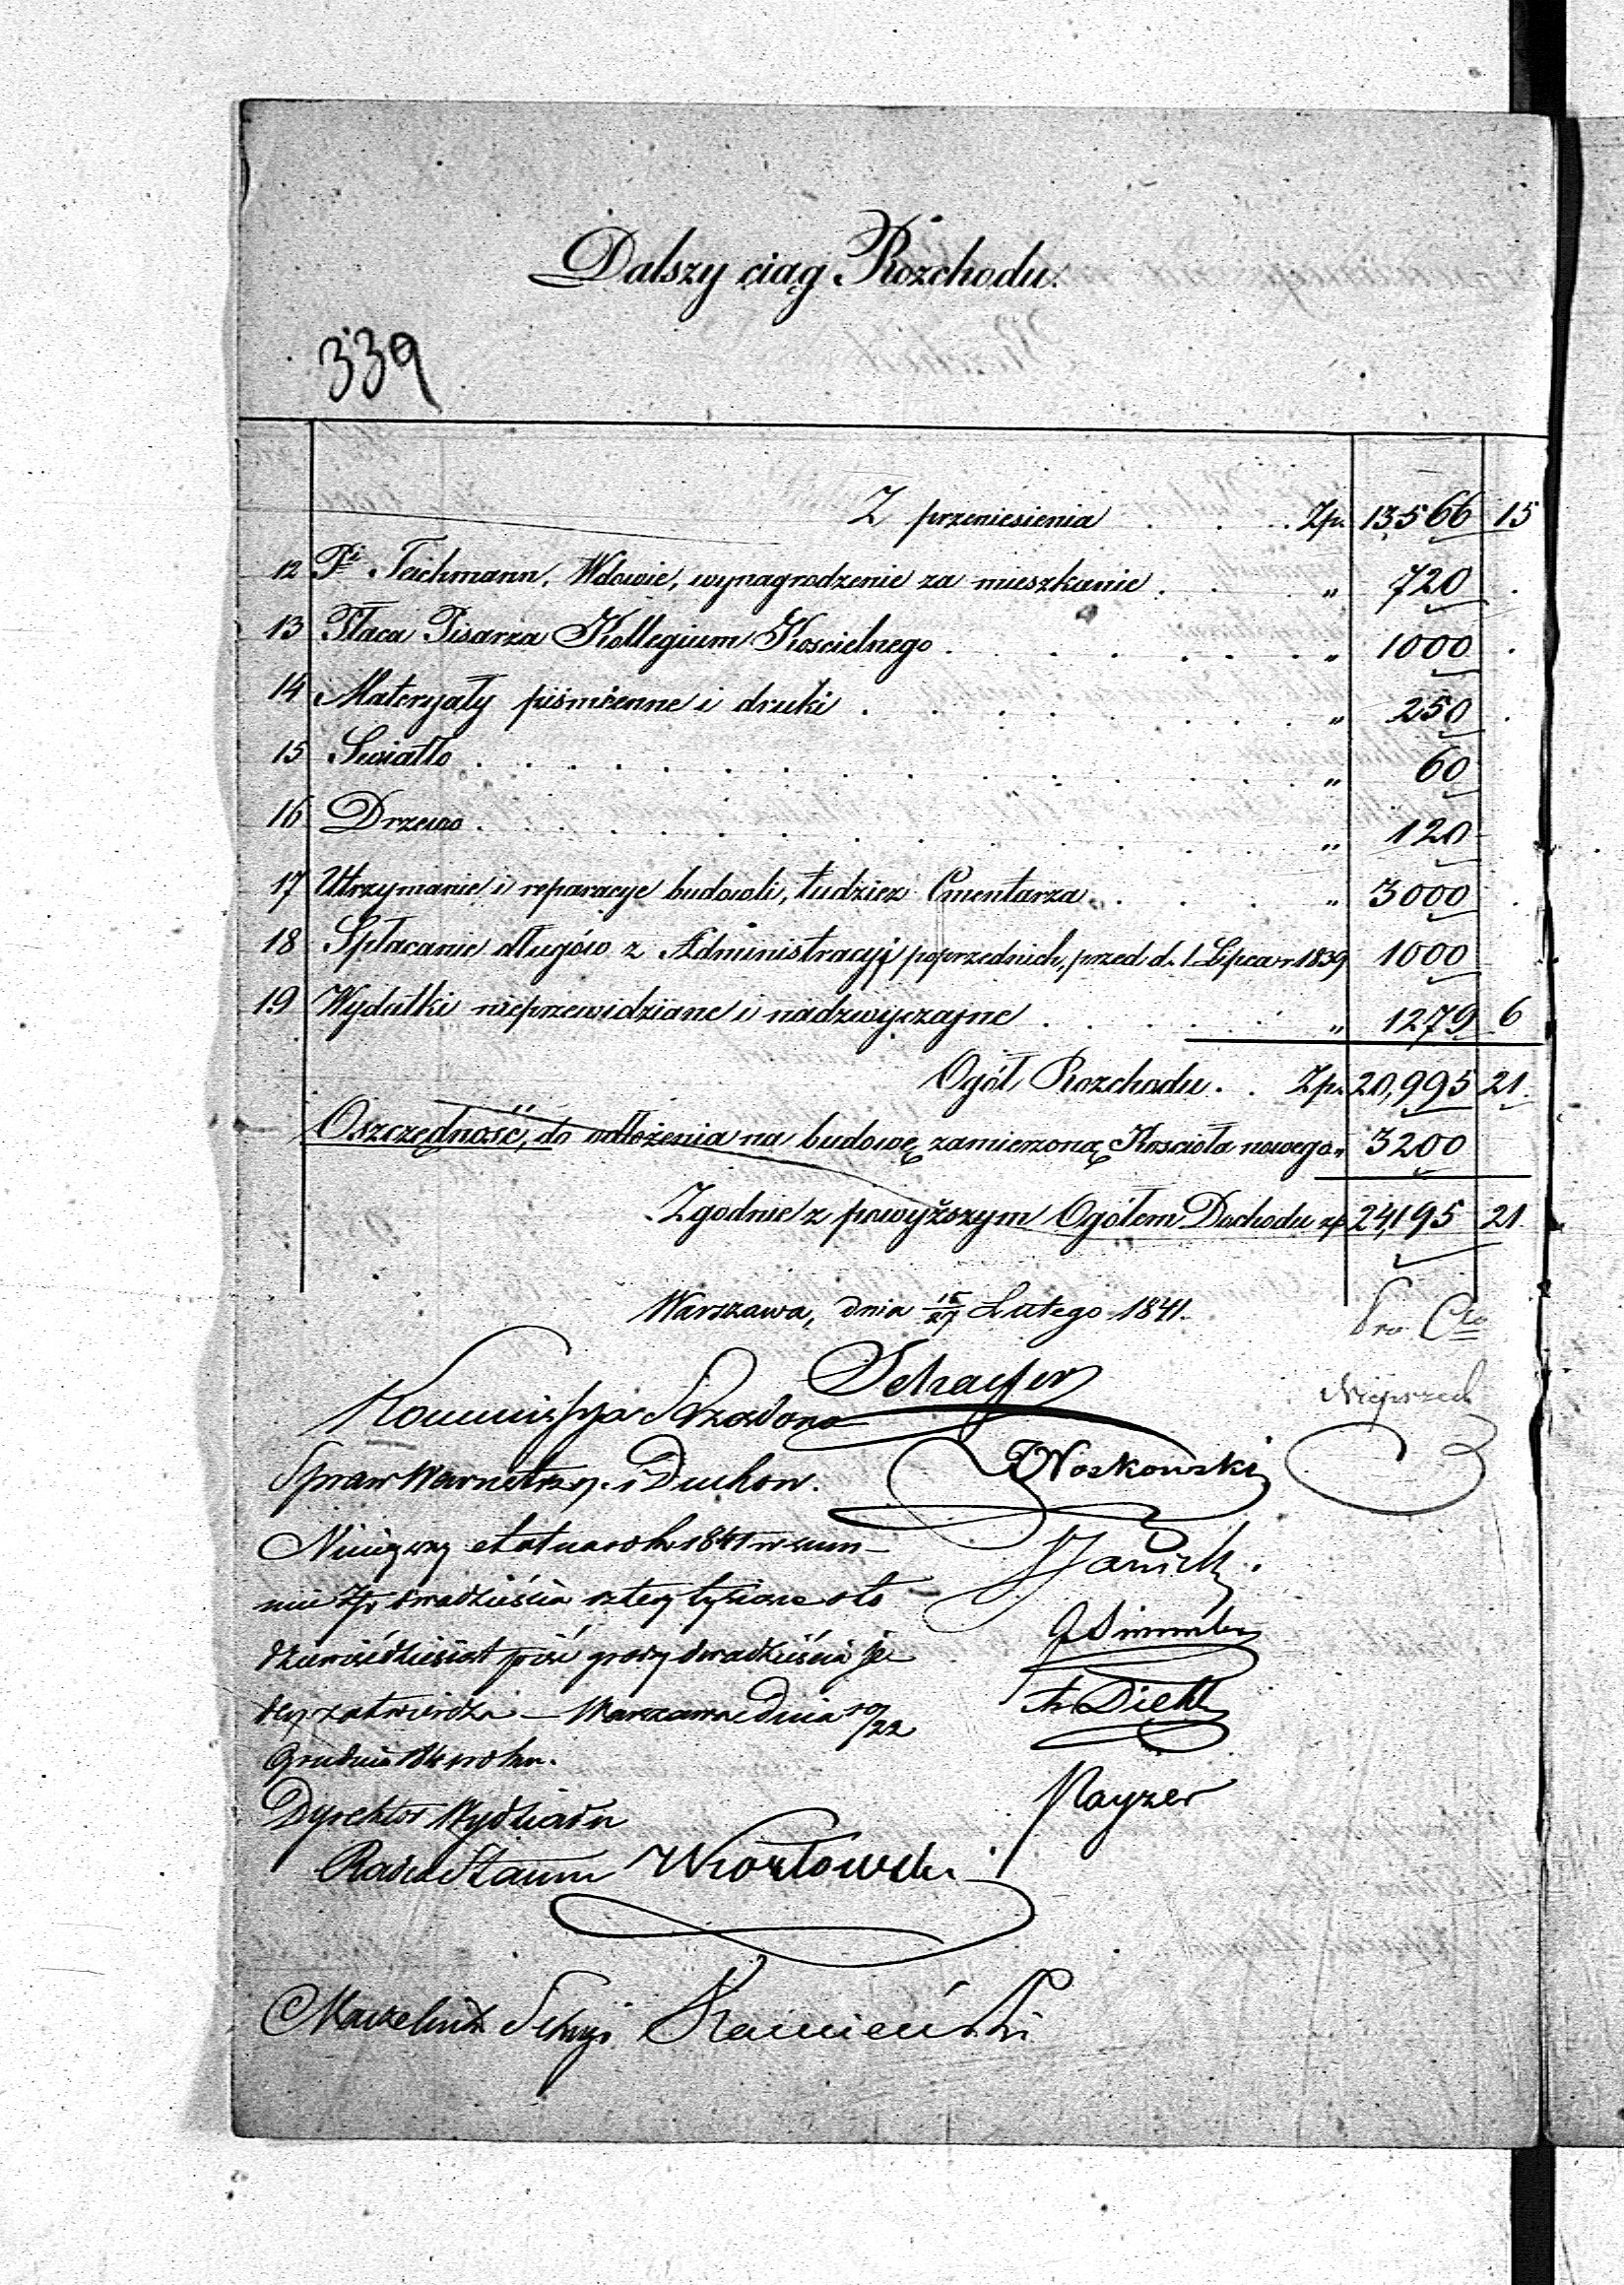 Dalszy ciąg Rozchodu.
339
Z przeniesienia . . . Zp. 13,566 15
12 Pi Teichmann, Wdowie, wynagrodzenie za mieszkanie . . . " 720 .
13 Płaca Pisarza Kollegium Kościelnego . . . . . . . " 1000 .
14 Materyały piśmienne i druki . . . . . . . . " 250 .
15 Swiatło . . . . . . . . . . . . " 60
16 Drzewo . . . . . . . . . . . . " 120
17 Utrzymanie i reparacye budowli, tudzież Cmentarza . . . . " 3000 .
18 Spłacanie długów z Administracyi poprzednich, przed d. 1 Lipca r. 1839 1000
19 Wydatki nieprzewidziane i nadzwyczajne . . . . . . " 1279 6
Ogół Rozchodu . . Zp. 20,995 21.
Oszczędność, do odłożenia na budowę zamierzoną Kościoła nowego " 3200
Zgodnie z powyższym Ogółem Dochodu zp. 24,195 21
Warszawa, dnia 15/27 Lutego 1841.
Schaeffer
Kommissya Rządowa
Spraw Wewnetrzn. i Duchow.
Woskowski
Niniejszy etat na rok 1841 w sum-
mie Zp. dwadzieścia cztery tysiące sto
dziewięćdziesiąt pięć groszy dwadzieścia je
den zatwierdza — Warszawa dnia 10/22
Grudnia 1841 roku.
Diehl
Kayzer
Dyrektor Wydziału
Radca Stanu Kozłowski
Naczelnik Sekcyi Kamieński